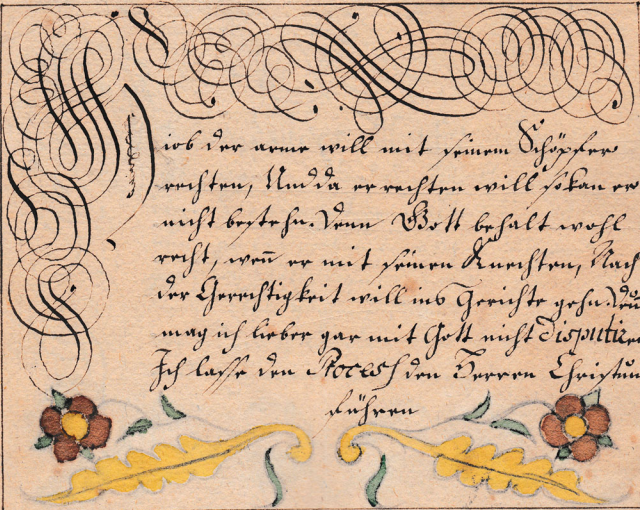 Hiob der arme will mit seinem Schöpfer
rechten, Und da er rechten will so kan er
nicht bestehn. Denn Gott behalt wohl
recht, weñ er mit seinen Knechten, Nach
der Gerechtigkeit will ins Gerichte gehn. Drū
mag ich lieber gar mit Gott nicht disputiren
Ich lasse den Process den Herren Christum
führen